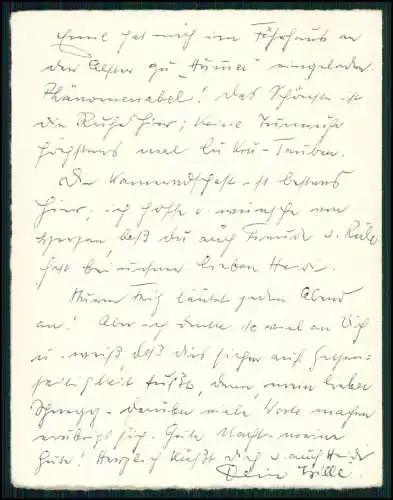 Emil hat mich im Fährhaus an
der Alster zu "Hummer" eingeladen.
Phänomenabel! Das Schönste ist
die Ruhe hier; keine
höchstens mal Tauben.
Die Kameradschaft ist bestens
hier; ich hoffe u. wünsche von
Herzen, daß du auch Freude u. Ruhe
hast bei unserer lieben Heidi.
läutet jeden Abend
an! Aber ich denke so viel an Dich
u. weiß, daß dies sicher auf Gegen=
seitigkeit fußt, denn, mein lieber
darüber viele Worte machen
erübrigt sich. Gute Nacht meine
Gute! Herzlich küßt Dich u. auch Heidi
Dein Willi.